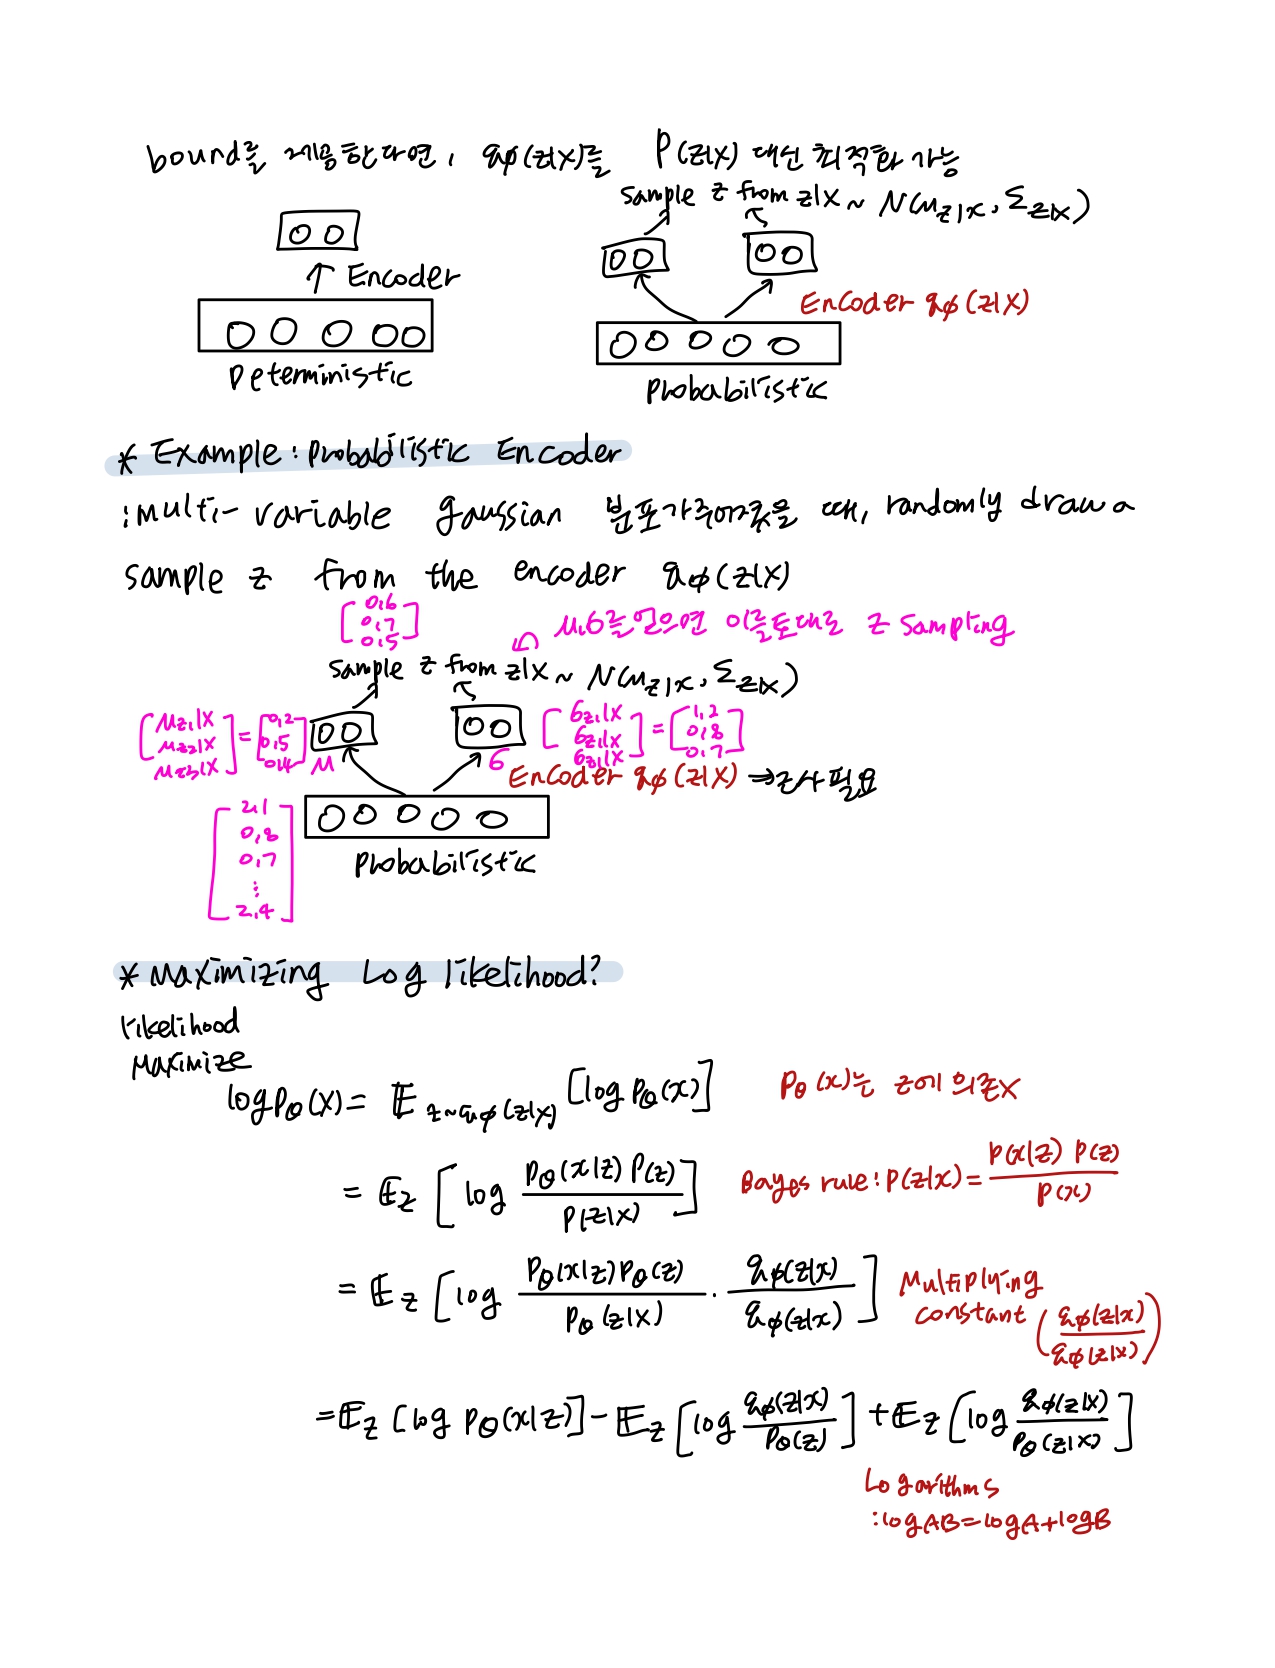 bound를 제공한다면, qφ(z|X)를 P(z|X) 대신 최적화 가능
sample z from z|X ~ N(μz|x, Σz|x)
↑ Encoder
Encoder qφ(z|X)
Deterministic
Probabilistic
* Example : Probabilistic Encoder
: multi-variable gaussian 분포가 주어졌을 때, randomly draw a
sample z from the encoder qφ(z|X)
[0.6 0.7 0.5]
μ,σ를 얻으면 이를 토대로 z sampling
sample z from z|X ~ N(μz|x, Σz|x)
[μz1|X μz2|X μz3|X] = [0.2 0.5 0.4] μ
σ [σz1|X σz1|X σz1|X] = [1.2 0.8 0.7]
Encoder qφ(z|X) ⇒ 근사 필요
[2.1 0.8 0.7 ⋮ 2.4]
Probabilistic
* Maximizing Log likelihood?
Likelihood
Maximize
log Pθ(X) = E z~qφ(z|x) [log Pθ(x)]
Pθ(x)는 z에 의존X
= Ez [log Pθ(x|z) P(z) / P(z|X)]
Bayes rule : P(z|x) = P(x|z) P(z) / P(x)
= Ez [log Pθ(x|z)Pθ(z) / Pθ(z|X) · qφ(z|x) / qφ(z|x)]
Multiplying
constant (qφ(z|x) / qφ(z|x))
= Ez [log Pθ(x|z)] - Ez [log qφ(z|x) / Pθ(z)] + Ez [log qφ(z|x) / Pθ(z|x)]
Logarithms
: log AB = log A + log B